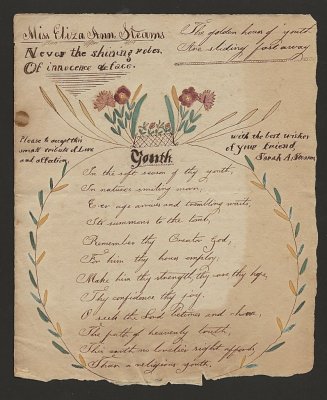 Miss Eliza Ann Stearns
Never the shining robes
Of innocence deface.
The golden hours of youth
Are sliding fast away
Please to accept this
small tribute of Love
and affection
with the best wishes
of your friend,
Sarah A.
Youth
In the soft season of thy youth,
In natures smiling morn,
Ere age arrives and trembling waits,
Its summons to the tomb,
Remember thy Creator God,
For him thy powers employ,
Make him thy strength, thy love thy hope,
Thy confidence thy joy.
O seek the Lord betimes and choose,
The path of heavenly truth,
This earth no lovelier sight affords,
Than a religious youth.